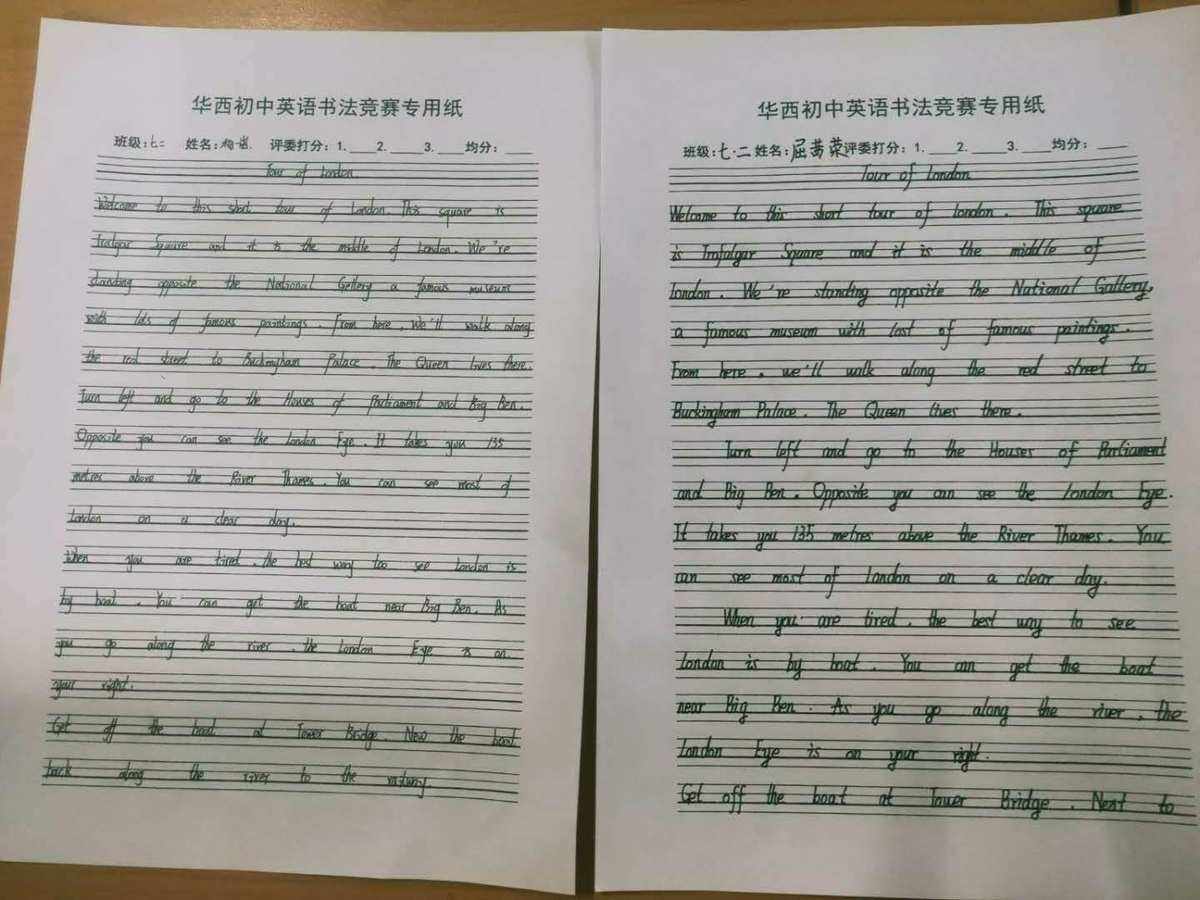 华西初中英语书法竞赛专用纸
班级:七二 姓名: 评委打分：1.____2.____3.____均分：____
Tour of London
Welcome to this short tour of London. This square is
Trafalgar Square and it is the middle of London. We're
standing opposite the National Gallery a famous museum
with lots of famous paintings. From here, we'll walk along
the red street to Buckingham Palace. The Queen lives there.
Turn left and go to the Houses of Parliament and Big Ben.
Opposite you can see the London Eye. It takes you 135
metres above the River Thames. You can see most of
London on a clear day.
When you are tired, the best way too see London is
by boat. You can get the boat near Big Ben. As
you go along the river, the London Eye is on
your right.
Get off the boat at Tower Bridge. New the boat
back along the river to the
华西初中英语书法竞赛专用纸
班级:七·二 姓名:屈 荣 评委打分：1.____2.____3.____均分：____
Tour of London
Welcome to this short tour of London. This square
is Trafalgar Square and it is the middle of
London. We're standing opposite the National Gallery,
a famous museum with lost of famous paintings.
From here, we'll walk along the red street to
Buckingham Palace. The Queen lives there.
Turn left and go to the Houses of Parliament
and Big Ben. Opposite you can see the London Eye.
It takes you 135 metres above the River Thames. You
can see most of London on a clear day.
When you are tired, the best way to see
London is by boat. You can get the boat
near Big Ben. As you go along the river, the
London Eye is on your right.
Get off the boat at Tower Bridge. Next to